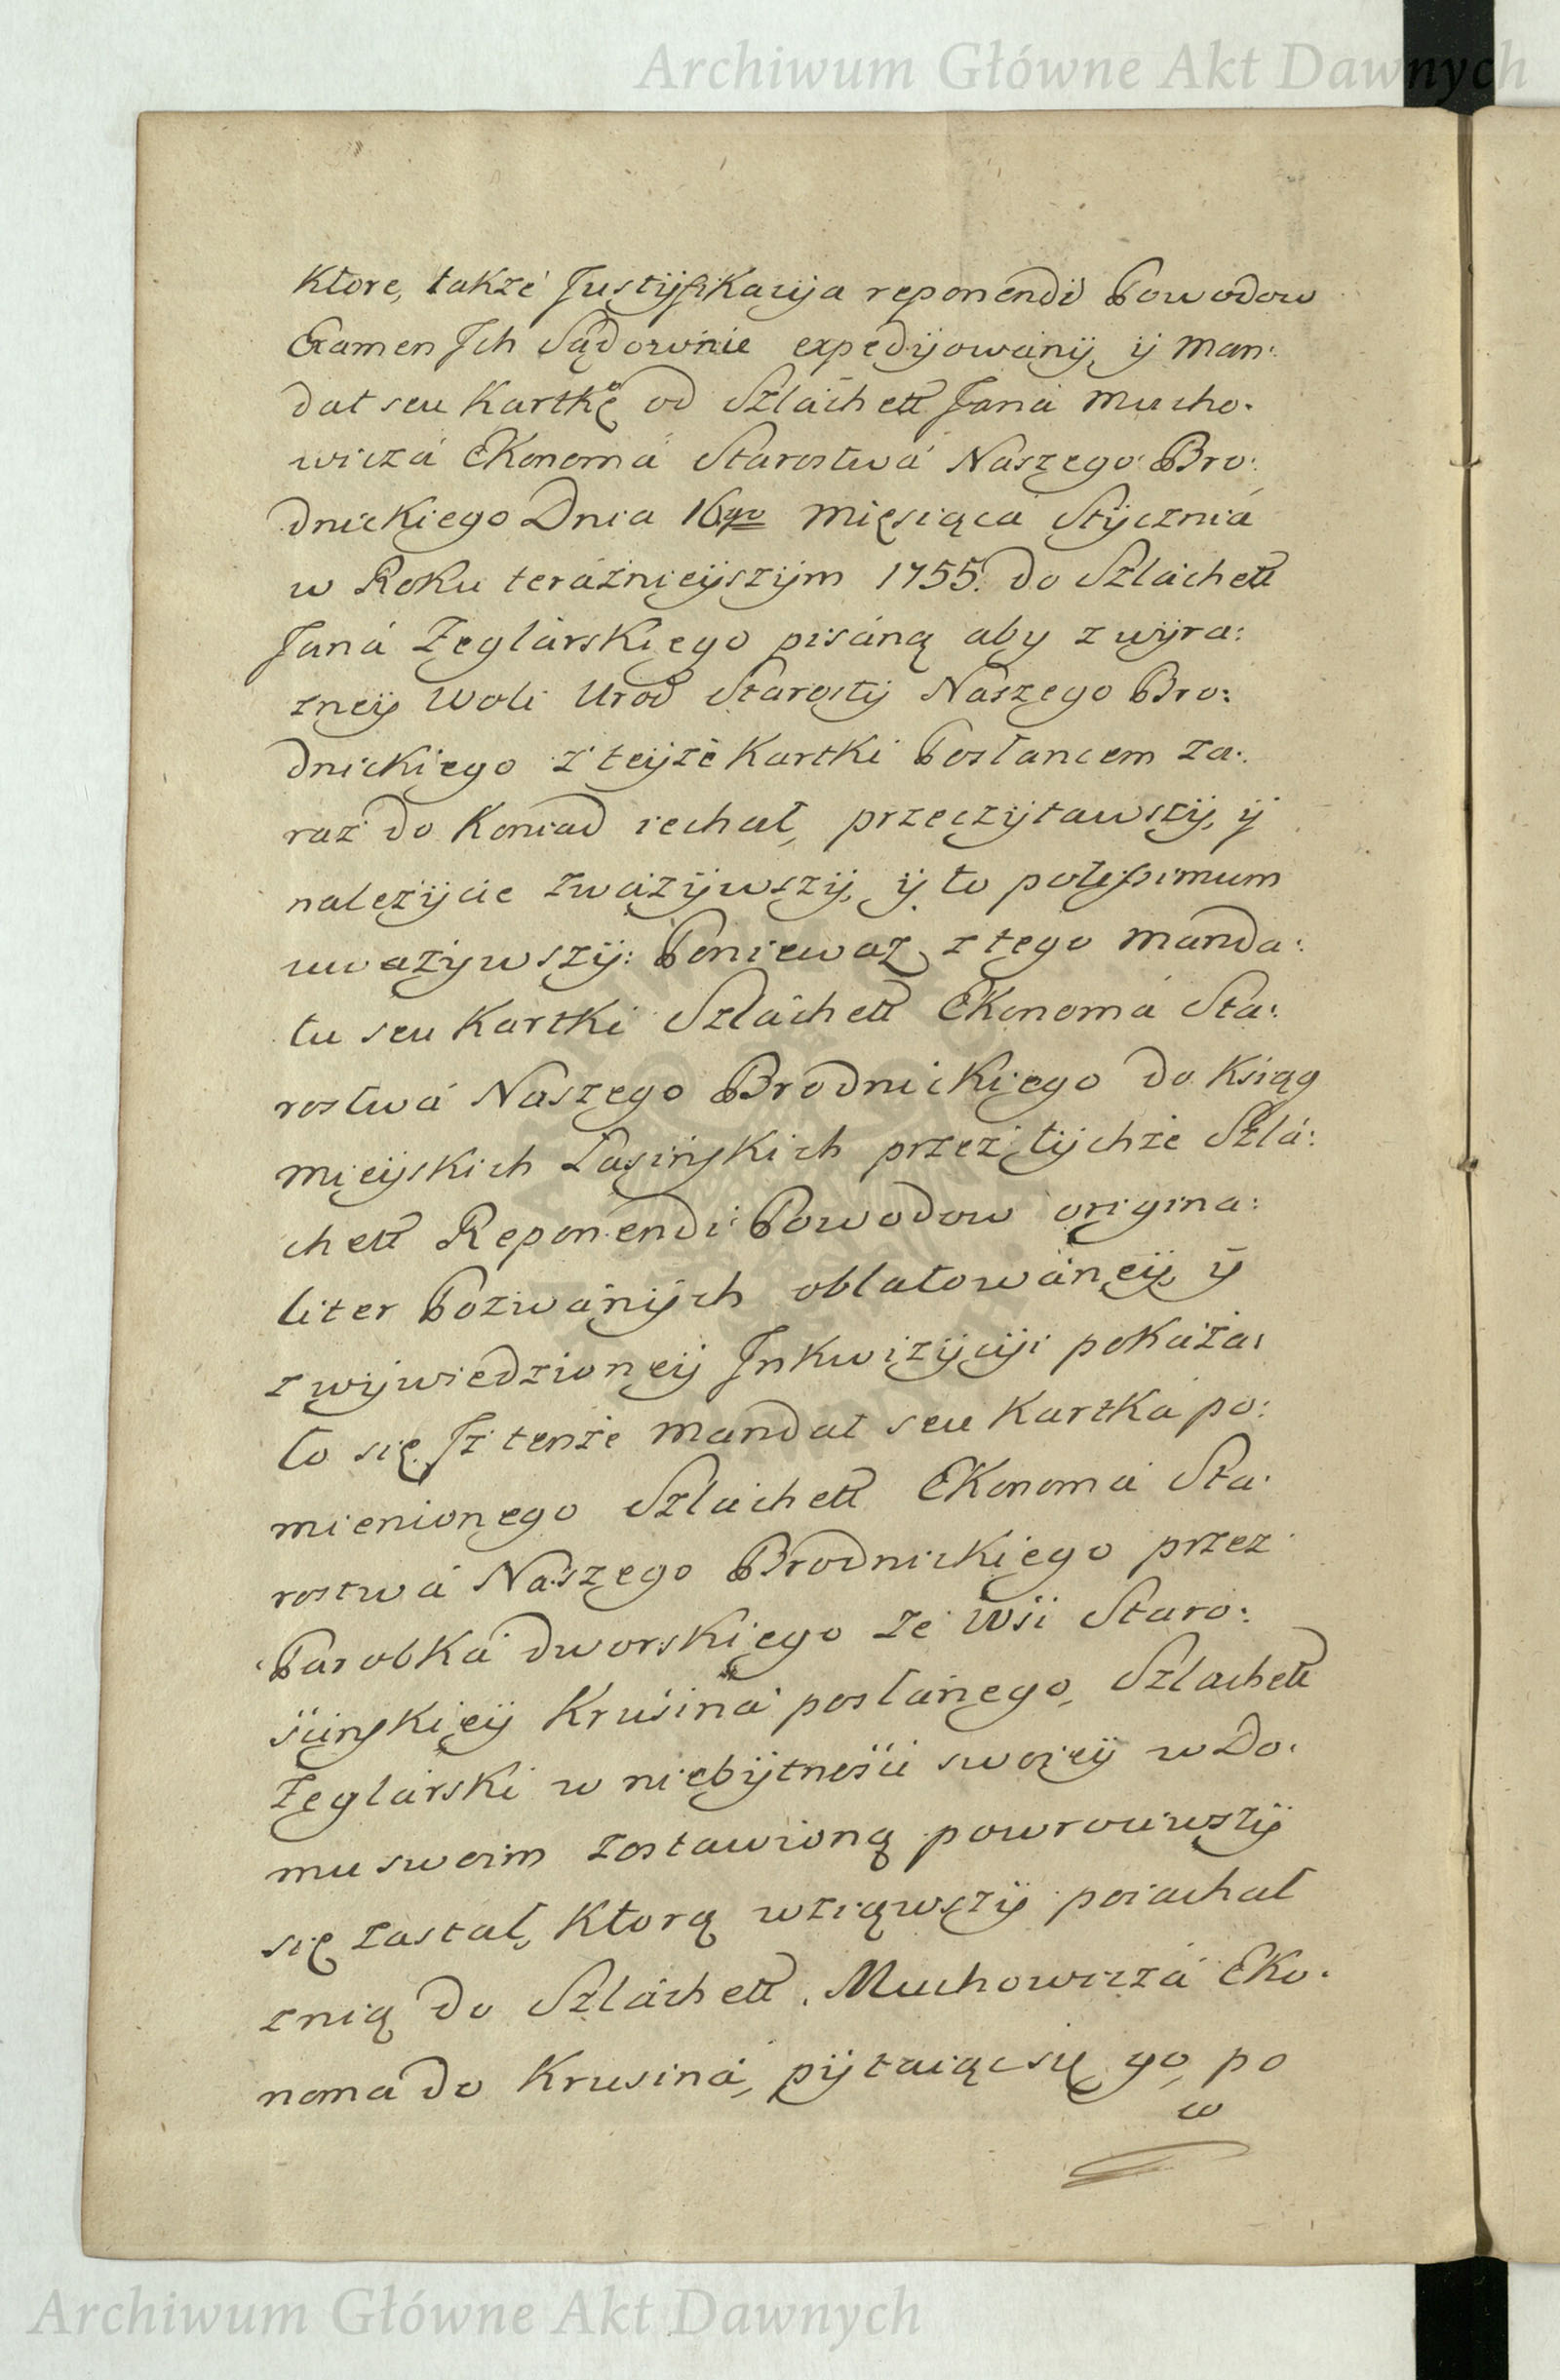 Archiwum Główne Akt Dawnych
Ktore, takze Justyfikacya reponendi Powodow
Examen Jch Sądownie expedyiowany, ÿ Man:
dat seu Kartkę od Szláchett Jana Mucho.
wiczá Ekonomá Starostwá Naszego Bro:
dnickiego Dnia 16go Miesiąca Stÿcznia
w Roku teráznieÿszÿm 1755. do Szláchett
Janá Zeglárskiego pisáną aby z wÿra:
zneÿ Woli Urod Starostÿ Naszego Bro:
dnickiego z teÿze Kartki Posłancem za:
raz do Koniad iechał, przeczÿtawszÿ, ÿ
nalezÿcie zwazÿwszÿ, ÿ to potissimum
uwazÿwszÿ: Poniewaz z tego Manda:
tu seu Kartki Szláchett Ekonomá Sta:
rostwá Naszego Brodnickiego do Ksiąg
Mieÿskich Łasinskich przez tÿchze Szlá:
chett Reponendi Powodow origina:
liter Pozwánÿch oblatowáneÿ ÿ
z wÿwiedzioneÿ Jnkwizÿcÿi pokaza:
ło się. Jz tenze Mandat seu Kartká po:
mienionego Szláchett Ekonomá Sta:
rostwá Naszego Brodnickiego przez
Parobká dworskiego ze Wsi Staro:
scinskieÿ Krusiná posłánego, Szlachett
Zeglárski w niebÿtnosci swoieÿ w Do:
mu swoim zostawioną powrociwszÿ
się zastał, Ktorą wziąwszÿ poiachał
znią do Szláchett. Muchowiczá Eko:
noma do Krusiná, pÿtaiąc się go, po
w
Archiwum Główne Akt Dawnych